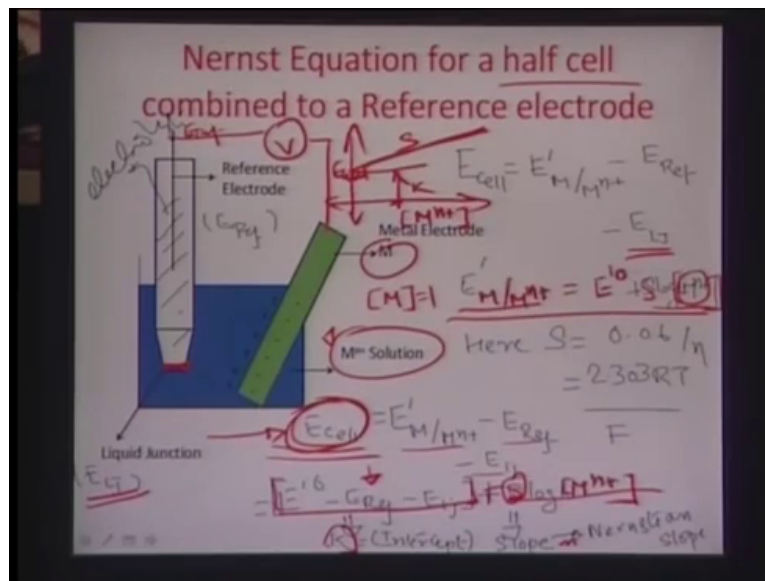 Nernst Equation for a half cell
combined to a Reference electrode
V
S
Reference
Electrode
(E_Ref)
K
[Mⁿ⁺]
E_cell = E'_M/Mⁿ⁺ - E_Ref
- E_LJ
Metal Electrode
M
[M]=1
E'_M/Mⁿ⁺ = E'⁰ + S log
Mⁿ⁺ Solution
Here S = 0.06/n
= 2303RT
F
Liquid Junction
(E_LJ)
E_cell = E'_M/Mⁿ⁺ - E_Ref
- E_Lj
= [E'⁰ - E_Ref - E_Lj] + S log [Mⁿ⁺]
K = (Intercept) Slope → Nernstian
slope